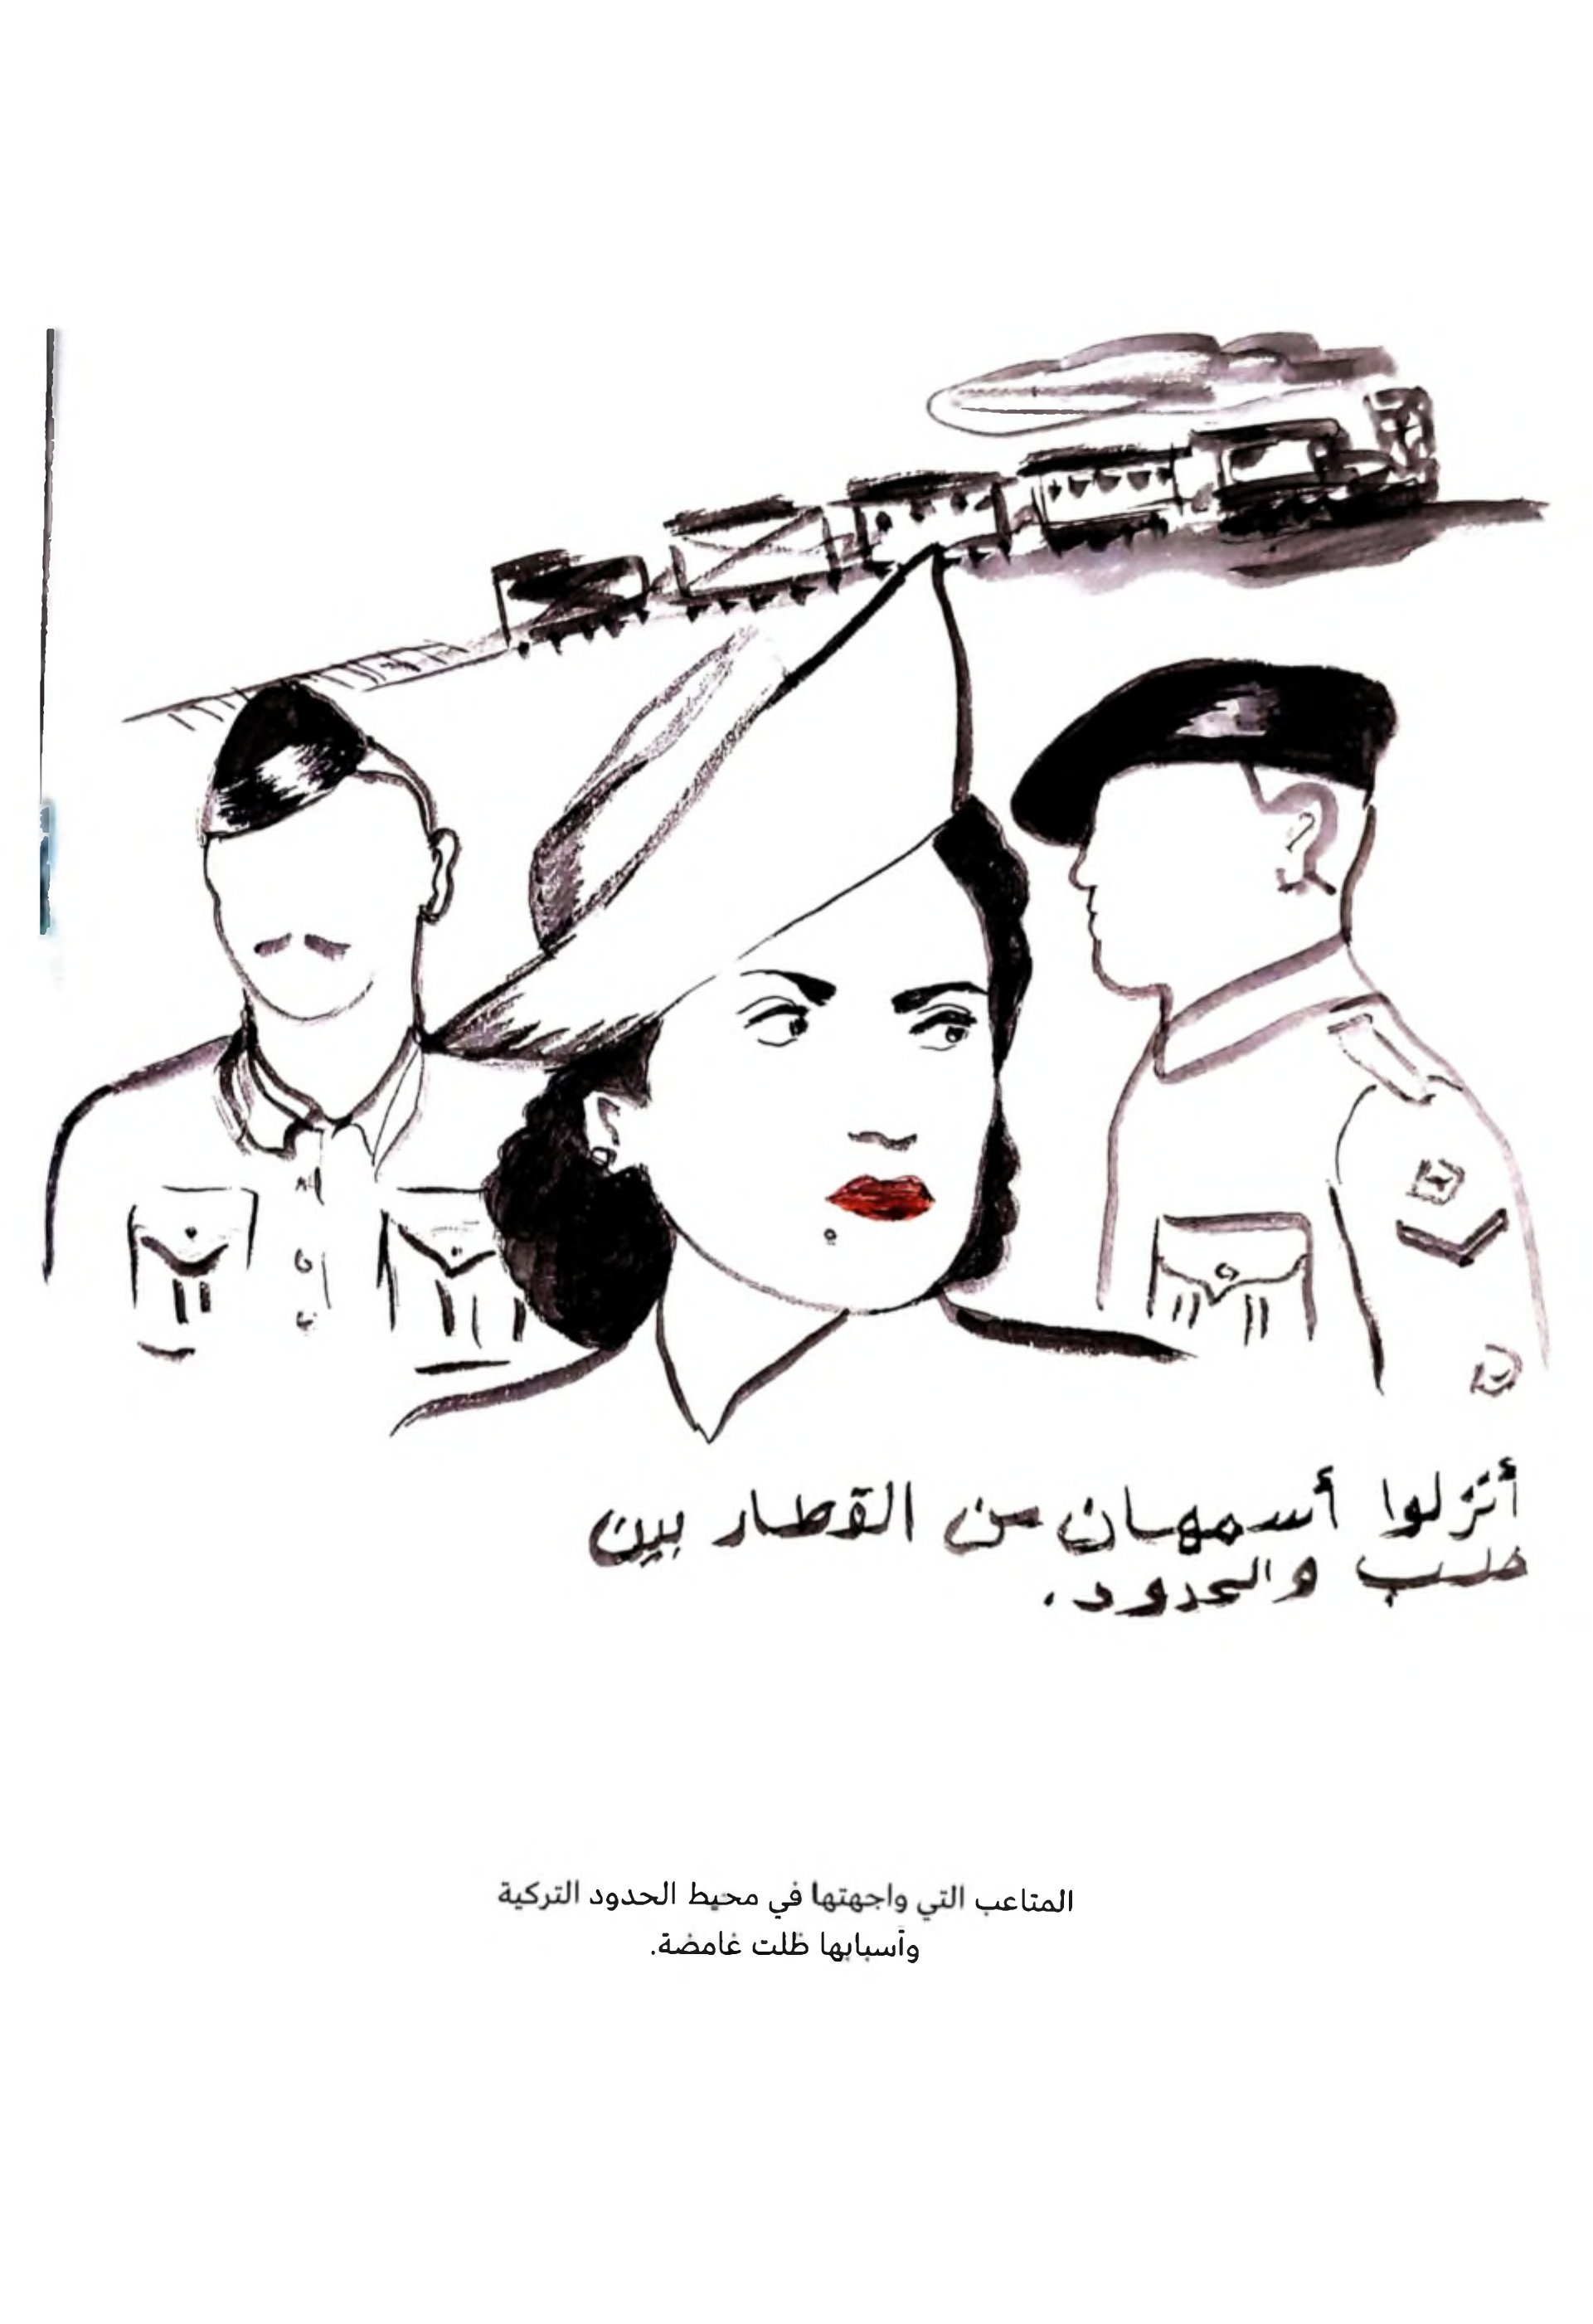 أنزلوا أسمهان من القطار بين
حلب والحدود.
المتاعب التي واجهتها في محيط الحدود التركية
وأسبابها ظلت غامضة.